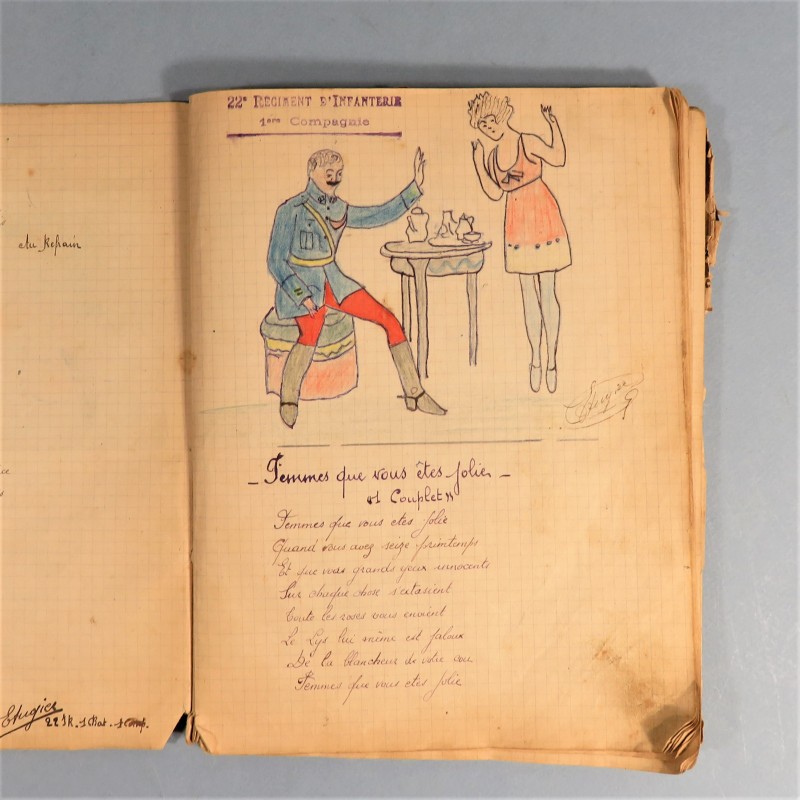 du Refrain
Etugier
22 IR. 1 Bat. 1 Comp.
22e RÉGIMENT D'INFANTERIE
1ere Compagnie
— Femmes que vous êtes jolie —
«1 Couplet»
Femmes que vous etes jolie
Quand vous avez seize printemps
Et que vos grands yeux innocents
Sur chaque chose s'extasient
Toute les roses vous envient
Le Lys lui même est jaloux
De la blancheur de votre cou
Femmes que vous etes jolie